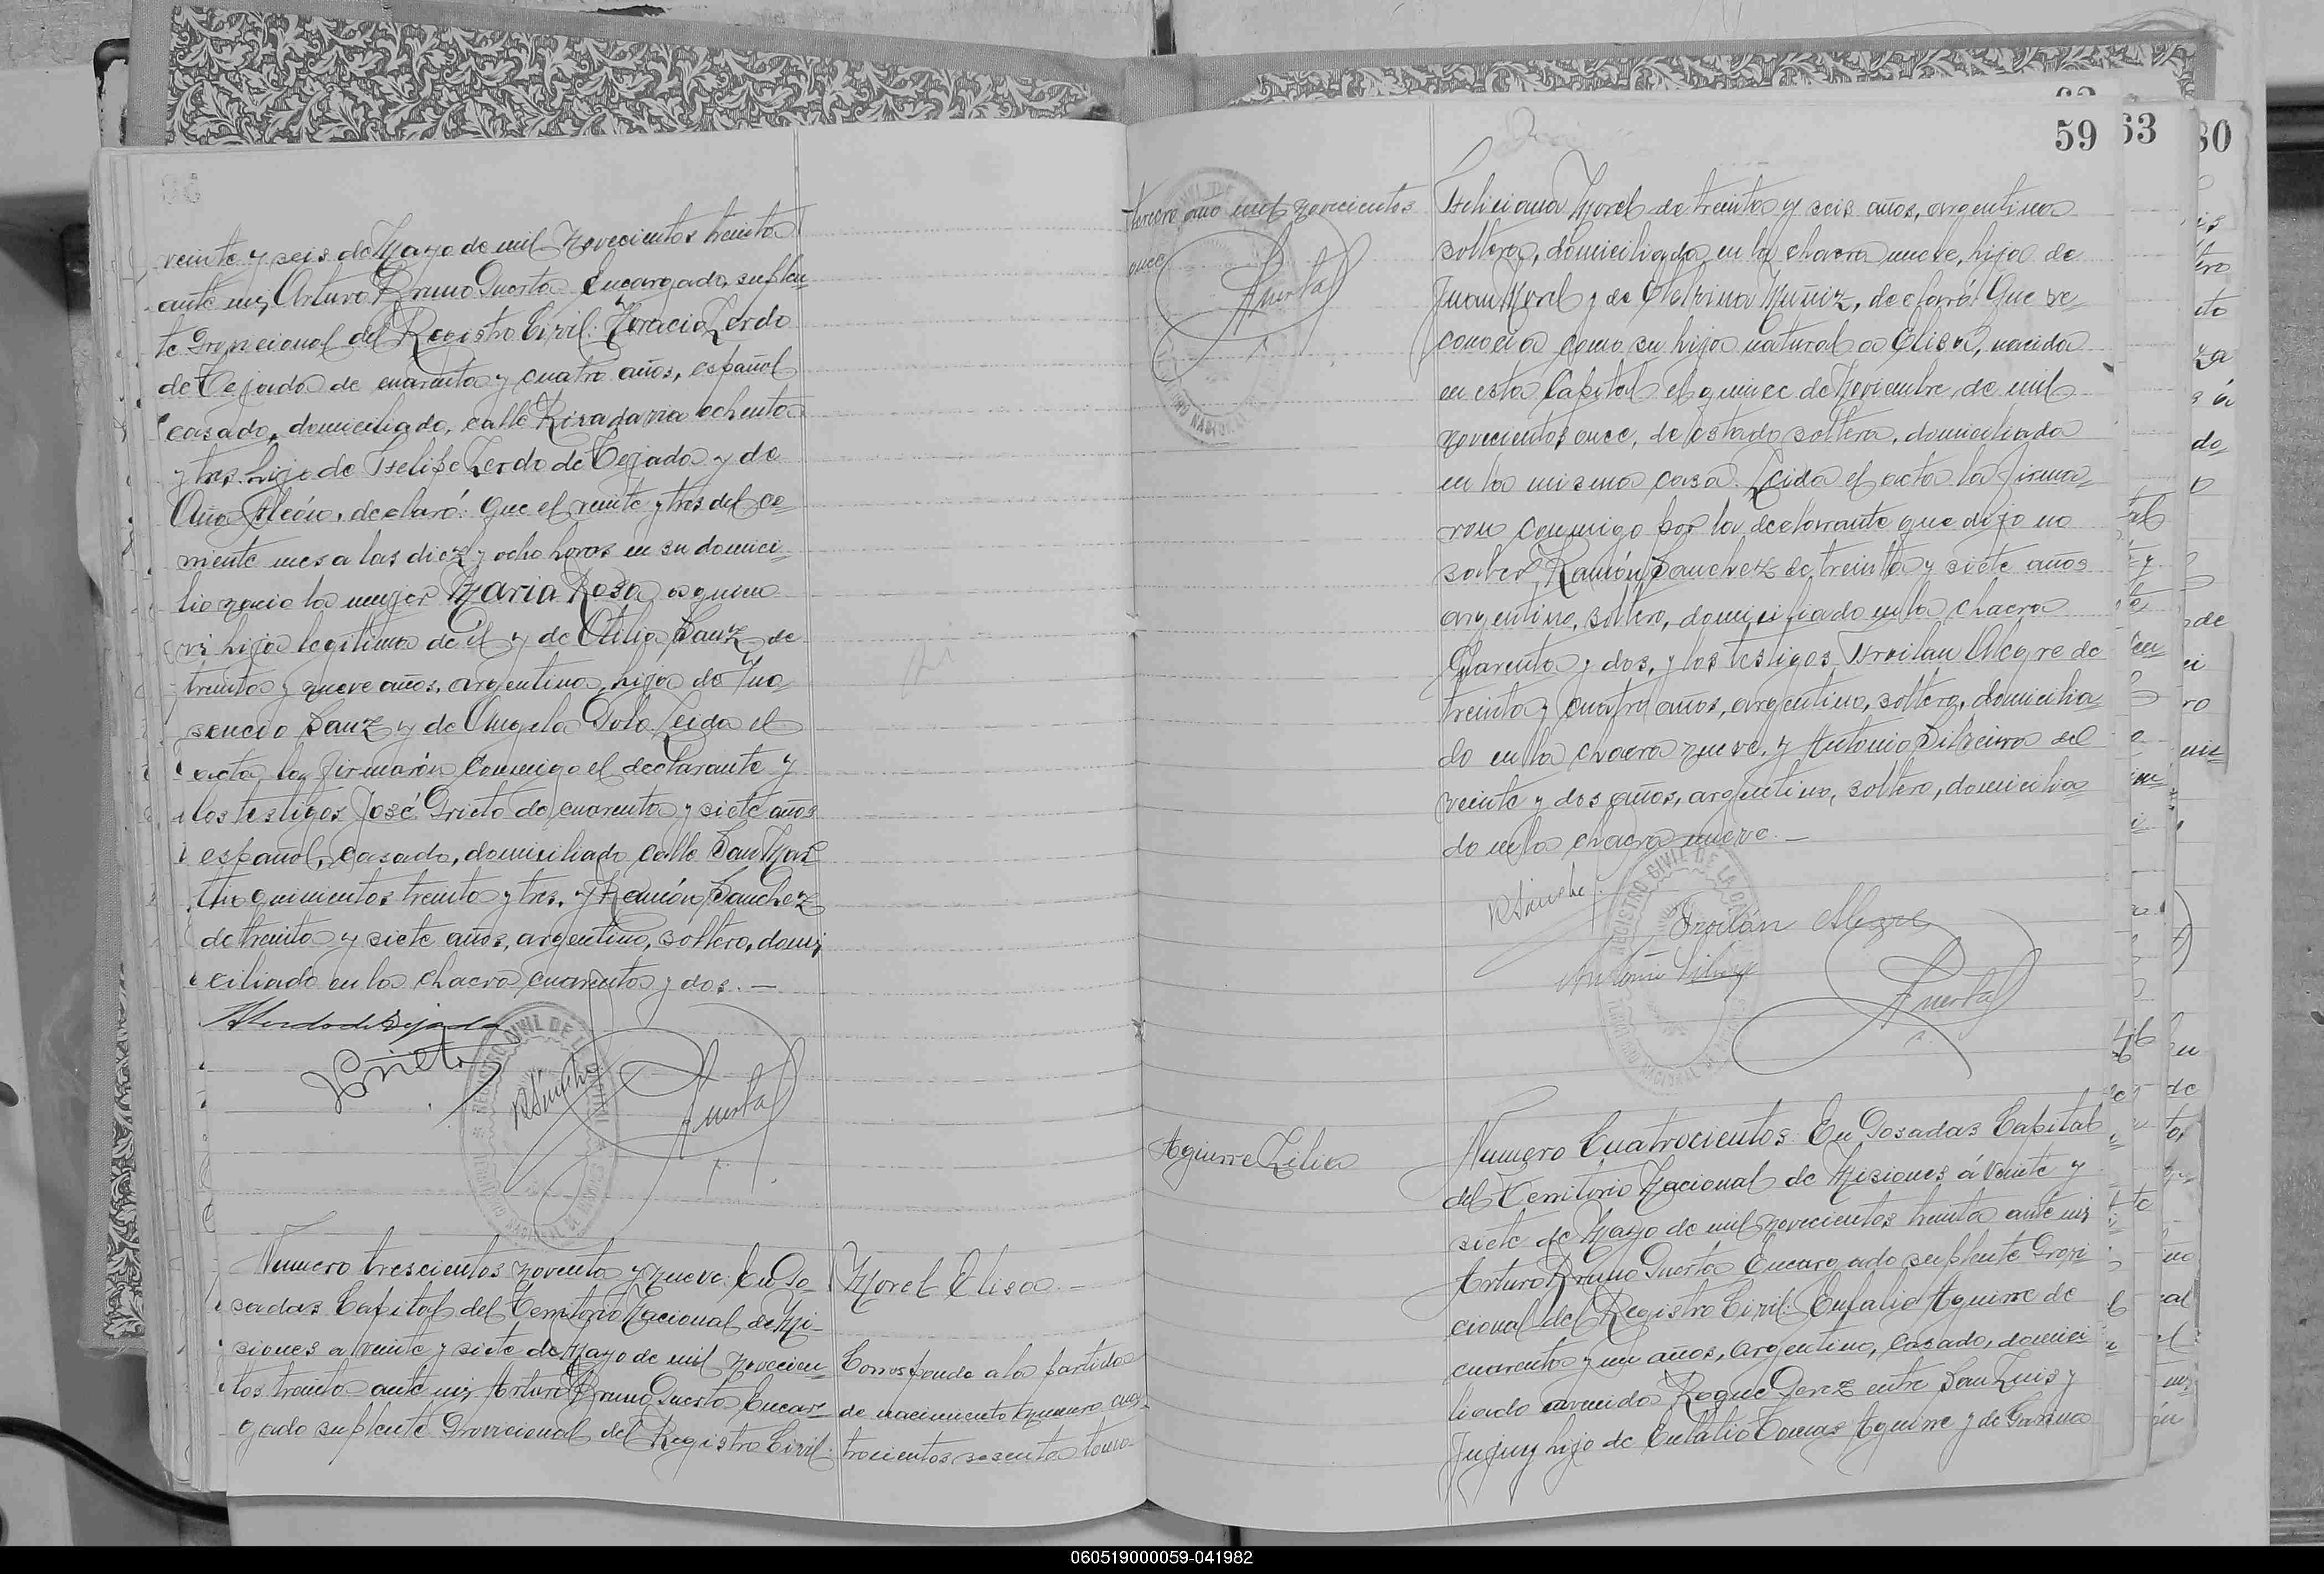 veinte y seis de Mayo de mil novecientos treinta
ante mi, Arturo Bruno Puerta Encargado, suplen-
te Provicional del Registro Civil: Horacio Lerdo
de Tejada de cuarenta y cuatro años, español
casado, domiciliado, calle Rivadavia ochenta
y tres hijo de Felipe Lerdo de Tejada y de
Ana León, declaró: Que el veinte y tres del co-
rriente mes a las diez y ocho horas en su domici-
lio nació la mujer Maria Rosa
hija legitima de él y de Otilia Sanz de
treinta y nueve años, argentina, hija de Ino-
sencio Sanz y de Angela Polo. Leida el
acta, la firmarón conmigo el declarante y
los testigos José Prieto de cuarenta y siete años
español, casado, domiciliado calle San Mar-
tin quinientos treinta y tres, y Ramón Sanchez
de treinta y siete años, argentino, soltero, domi-
ciliado en la chacra cuarenta y dos.—
HLerdo de Tejada
JPrieto
RSánchez
Puerta
Numero trescientos noventa y nueve: En Po-
sadas Capital del Territorio Nacional de Mi-
siones a veinte y siete de Mayo de mil novecien-
tos treinta ante mi Arturo Bruno Puerta Encar-
gado suplente Provicional del Registro Civil:
Morel Elisa.—
Corresponde a la partida
de nacimiento numero cua-
trocientos sesenta tomo
59
63
80
tercero año mil novecientos
once
Puerta
Feliciana Morel de treinta y seis años, argentina
soltera, domiciliada en la chacra nueve, hija de
Juan Morel y de Muñiz, declaró: Que re-
conocia como su hija natural a Elisa, nacida
en esta Capital el quince de Noviembre de mil
novecientos once, de estado soltera, domiciliada
en la misma casa. Leida el acta la firma-
ron conmigo por la declarante que dijo no
saber, Ramón Sanchez de treinta y siete años
argentino, soltero, domiciliado en la chacra
cuarenta y dos, y los testigos Froilan Alegre de
treinta y cuatro años, argentino, soltero, domicilia-
do en la chacra nueve, y Antonio Silveira de
veinte y dos años, argentino, soltero, domicilia-
do en la chacra nueve.—
RSánchez
Froilán Alegre
Antonio Silveira
Puerta
Aguirre Lilia
Numero Cuatrocientos: En Posadas Capital
del Territorio Nacional de Misiones á veinte y
siete de Mayo de mil novecientos treinta ante mi
Arturo Bruno Puerta Encargado suplente Provi-
cional del Registro Civil: Eulalio Aguirre de
cuarenta y un años, argentino, casado, domici-
liado avenida Roque Perez entre San Luis y
Jujuy hijo de Eulalio Tomas Aguirre y de
060519000059-041982